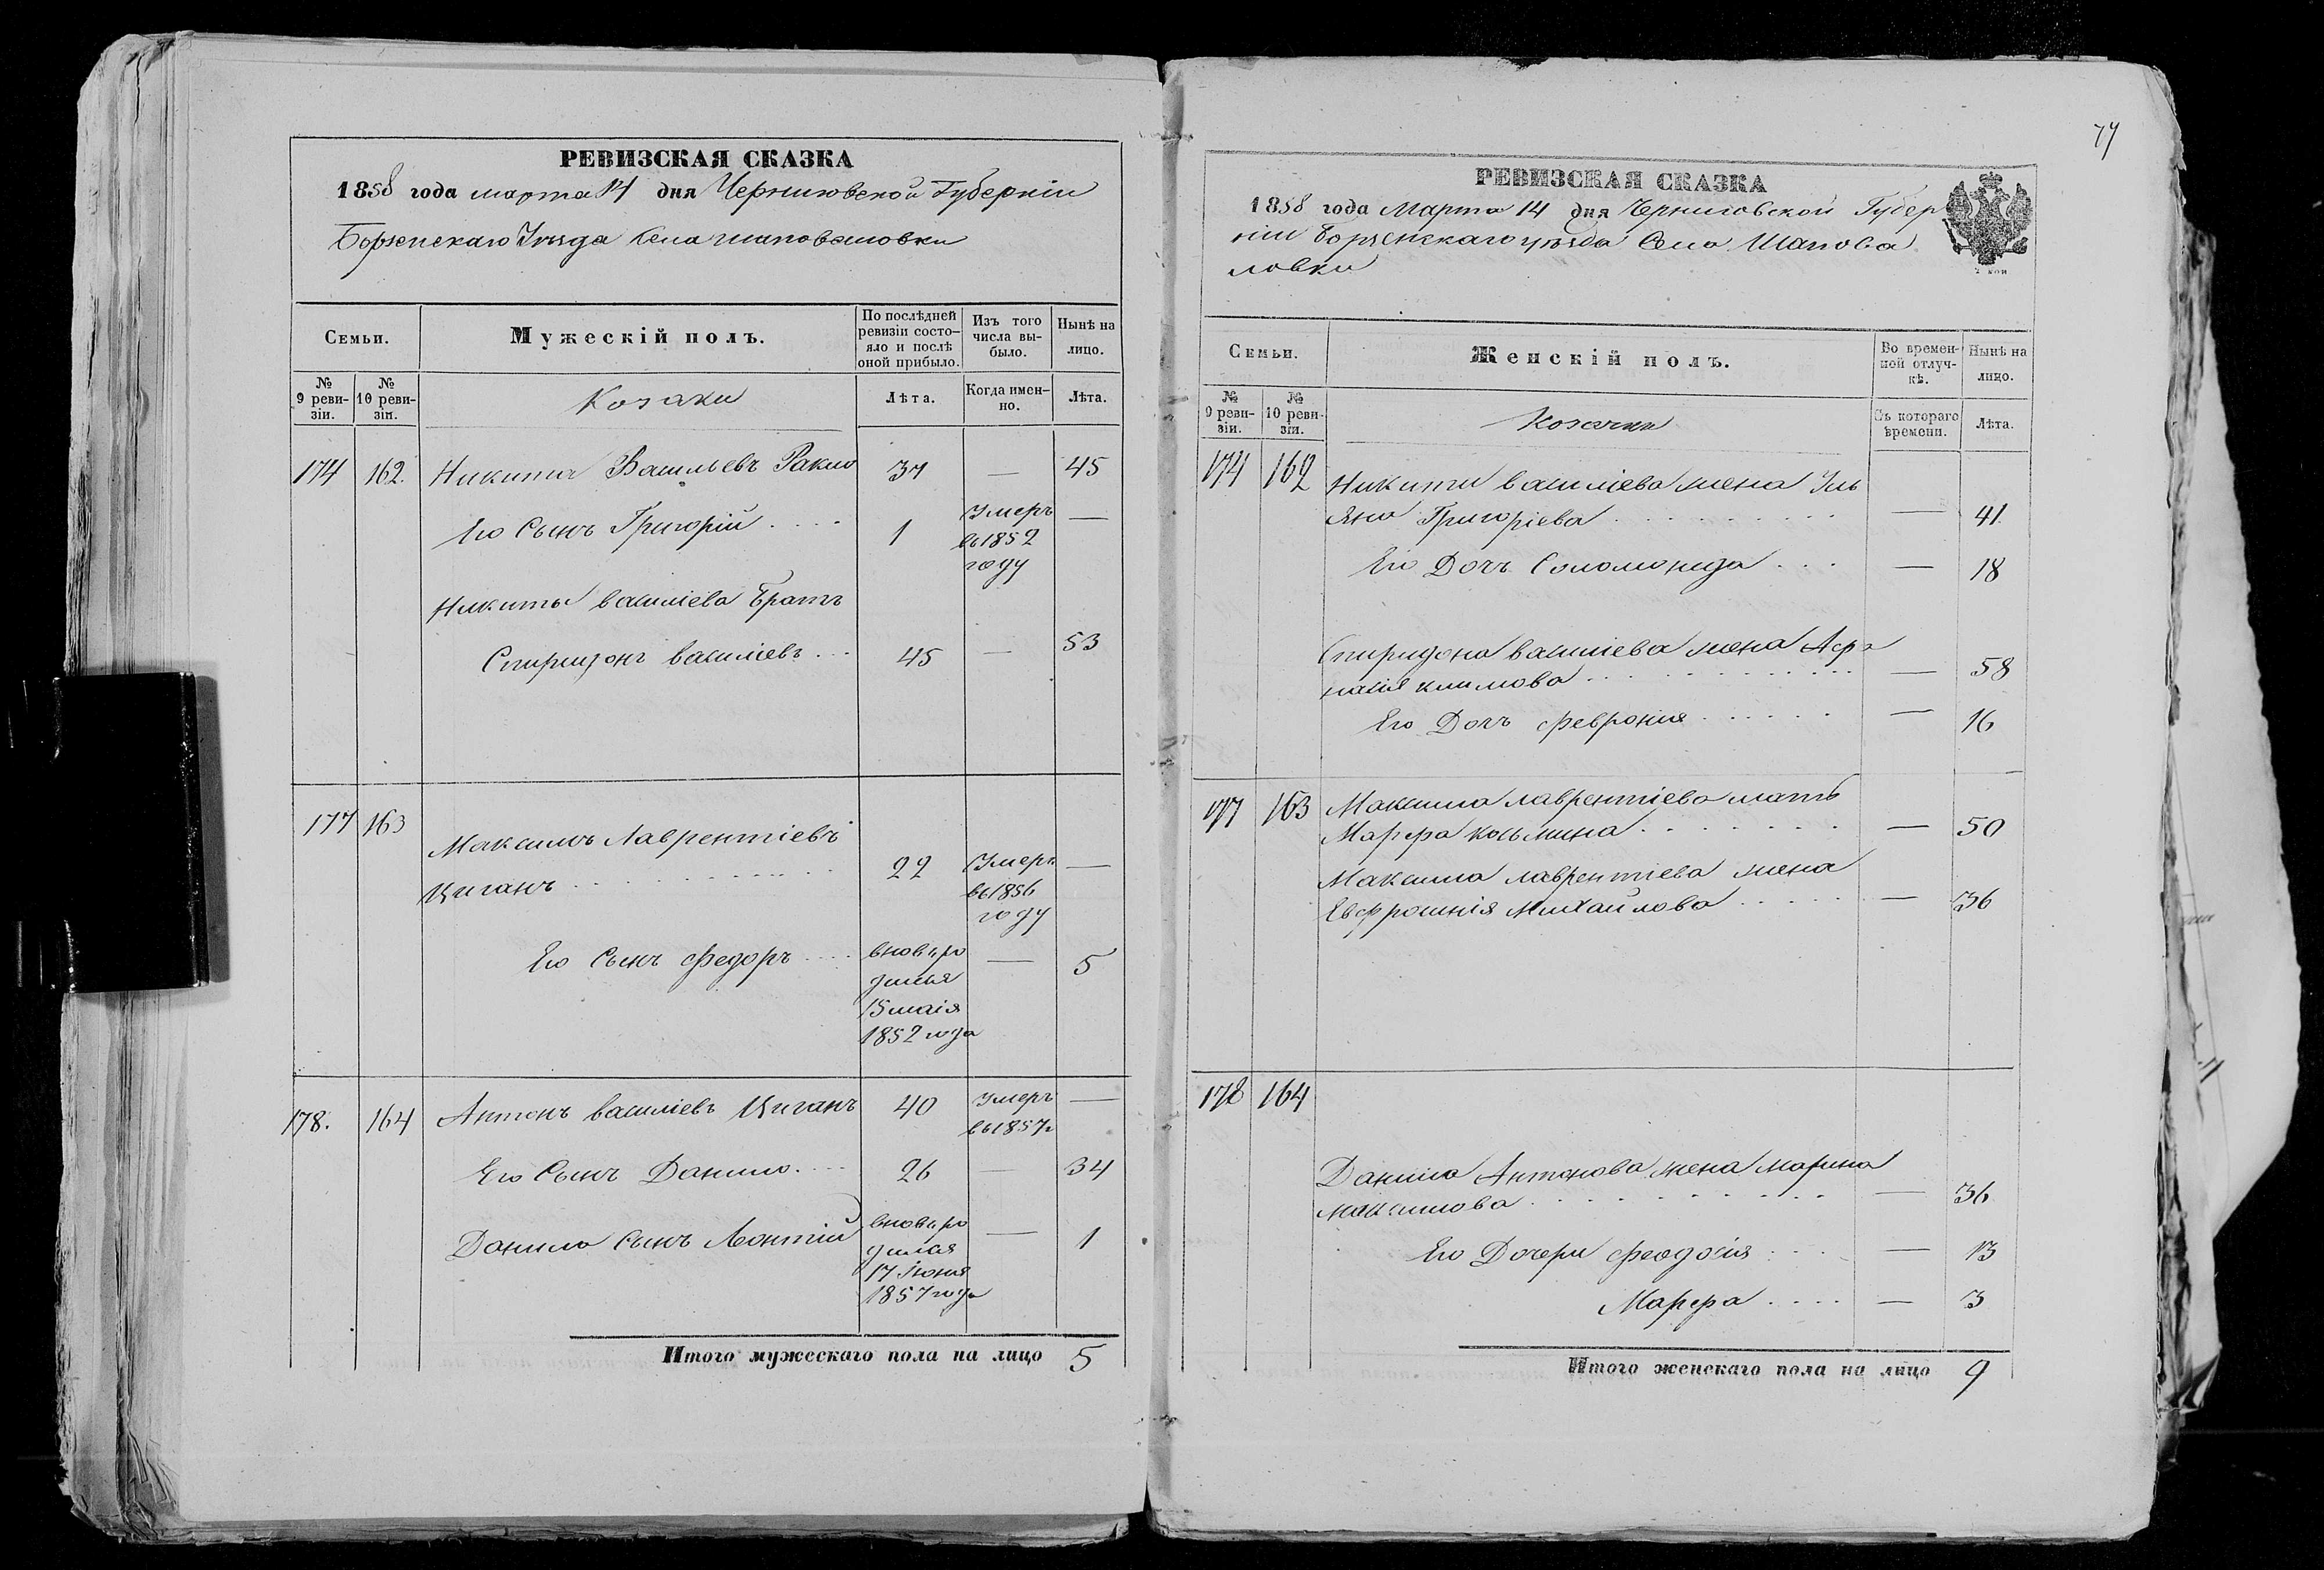 РЕВИЗСКАЯ СКАЗКА
1858 года марта 14 дня Черниговской Губерніи
Борзенскаго Уѣзда Села Шаповаловки
Семьи.
Мужескій полъ.
По послѣдней ревизіи состо-
яло и послѣ оной прибыло.
Изъ того числа вы-
было.
Нынѣ на лицо.
№ 9 реви-
зіи.
№ 10 реви-
зіи.
Козаки
Лѣта.
Когда имен-
но.
Лѣта.
174 162. Никита Васильевъ Ракло 37 — 45
Его Сынъ Григорій . . . . 1 Умеръ —
въ 1852
году
Никиты василіева Братъ
Спиридонъ василіевъ . . . 45 — 53
177 163
Максимъ Лаврентіевъ
Циганъ . . . . . . . . . . . 22 Умеръ —
въ 1856
году
Его Сынъ Федоръ . . . . вновь ро — 5
дился
15 маія
1852 года
178. 164 Антонъ василіевъ Циганъ 40 Умеръ —
въ 1857 г
Его Сынъ Данило. . . . 26 — 34
Данила Сынъ Леонтій вновь ро — 1
дился
17 Іюня
1857 года
Итого мужескаго пола на лицо 5
77
РЕВИЗСКАЯ СКАЗКА
1858 года Марта 14 дня Черниговской Губер
ніи Борзенскаго уѣзда Села Шапова
ловки
2 коп
Семьи.
Женскій полъ.
Во времен-
ной отлуч-
кѣ.
Нынѣ на лицо.
№ 9 реви-
зіи.
№ 10 реви-
зіи.
Козачки
Съ котораго времени.
Лѣта.
174 162 Никиты василіева жена Уль
яна Григоріева . . . . . . . . . — 41.
Его Дочь Соломонида . . . — 18
Спиридона василіева жена Афа
насія климова . . . . . . . . . . . — 58
Его Дочь Февронія . . . . . . — 16
177 163 Максима лаврентіева мать
Марфа козьмина . . . . . . . . — 50
Максима лаврентіева жена
Евфросинія Михайлова . . . . . — 36
178 164
Данила Антонова жена марина
максимова . . . . . . . . . . — 36
Его Дочери Феодосія . . . . — 13
Марфа . . . . — 3
Итого женскаго пола на лицо 9